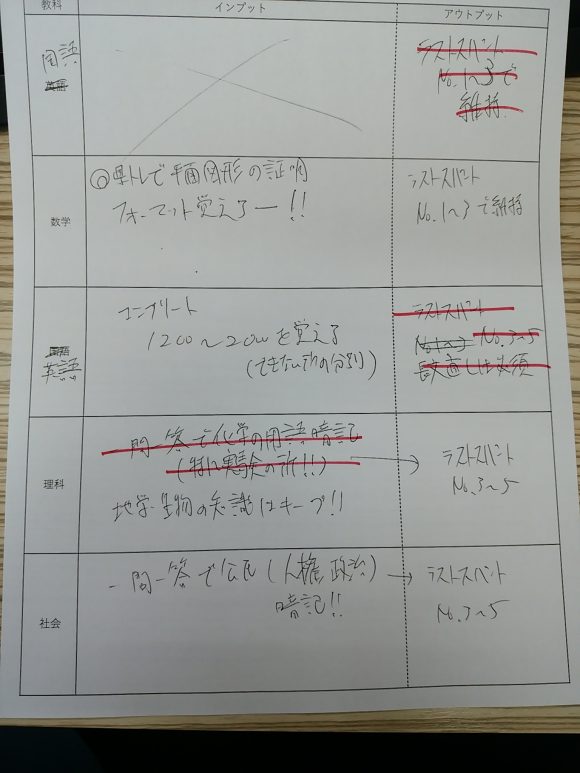 教科 インプット アウトプット
国語
英語
ラストスパート
No.1〜3で
維持
数学
◎単トレで平面図形の証明
フォーマット覚えるー!!
ラストスパート
No.1〜3で維持
国語
英語
コンプリート
1200〜2000を覚える
(できない所の分別)
ラストスパート
No.1〜3 No.3〜5
長文直しは必須
理科
一問一答で化学の用語暗記
(特に実験の所!!)
地学・生物の知識はキープ!!
→ ラストスパート
No.3〜5
社会
一問一答で公民(人権 政治)
暗記!!
→ ラストスパート
No.3〜5